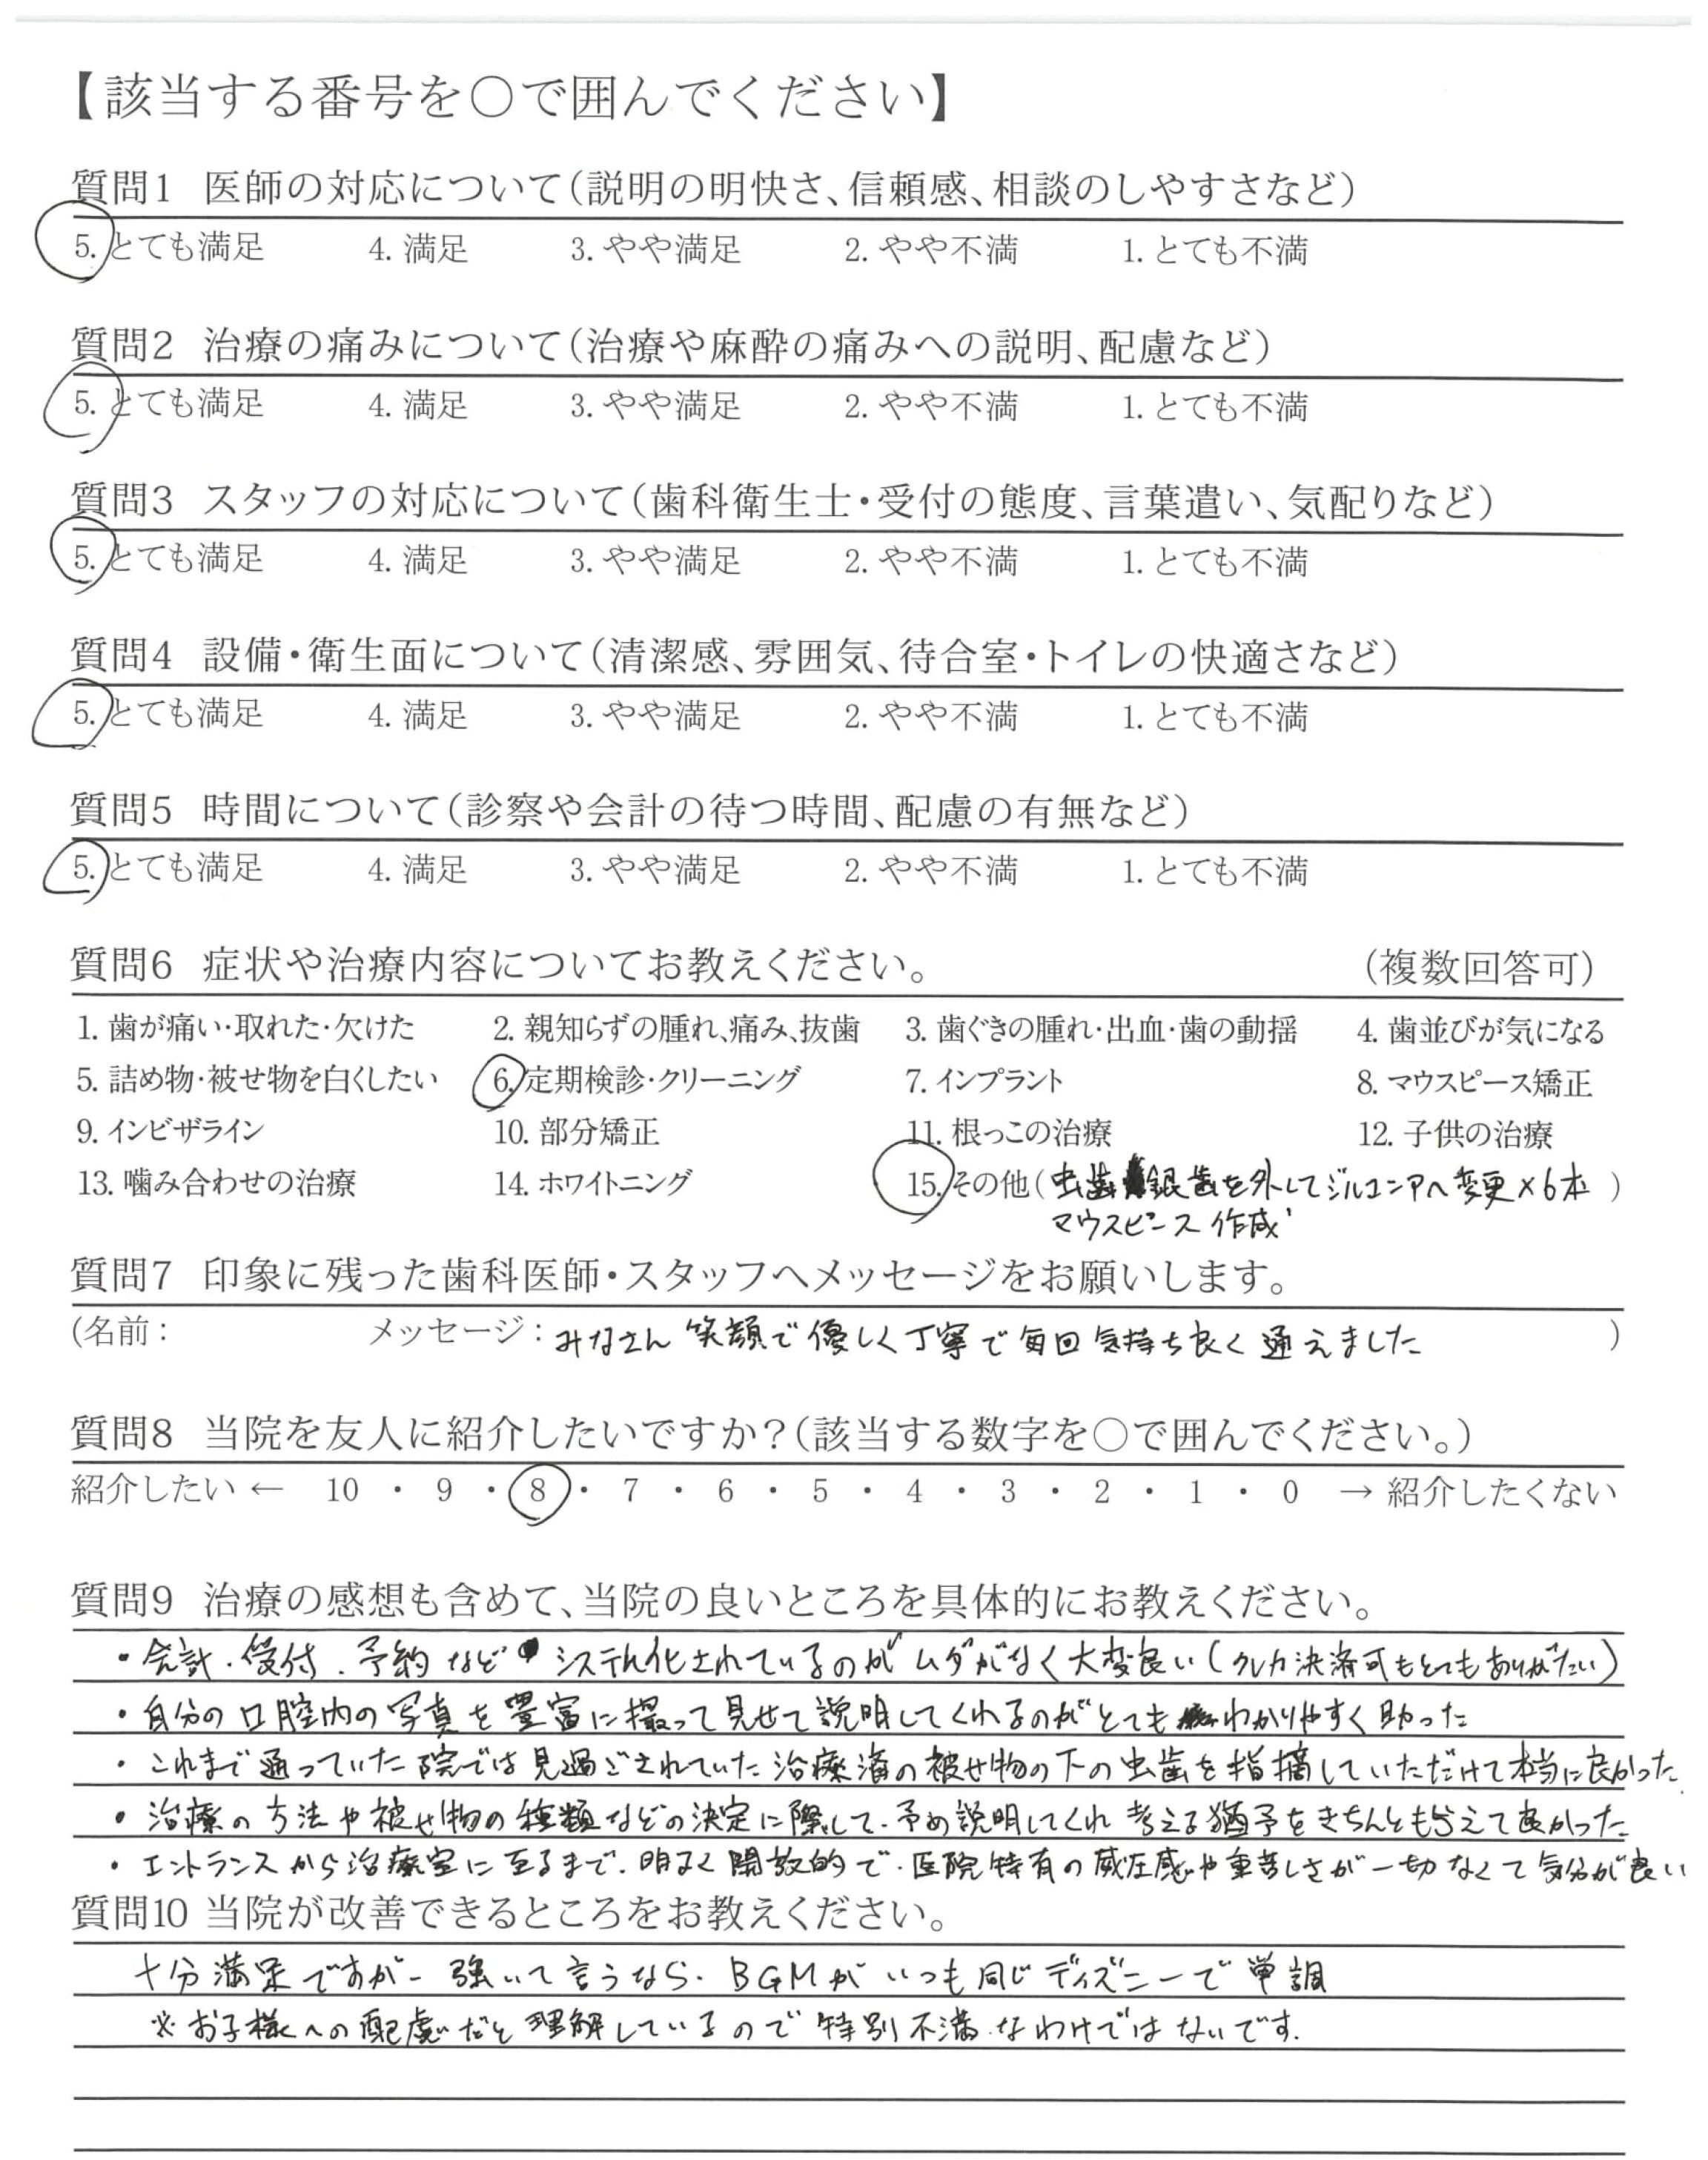 【該当する番号を○で囲んでください】
質問1 医師の対応について(説明の明快さ、信頼感、相談のしやすさなど)
5. とても満足 4. 満足 3. やや満足 2. やや不満 1. とても不満
質問2 治療の痛みについて(治療や麻酔の痛みへの説明、配慮など)
5. とても満足 4. 満足 3. やや満足 2. やや不満 1. とても不満
質問3 スタッフの対応について(歯科衛生士・受付の態度、言葉遣い、気配りなど)
5. とても満足 4. 満足 3. やや満足 2. やや不満 1. とても不満
質問4 設備・衛生面について(清潔感、雰囲気、待合室・トイレの快適さなど)
5. とても満足 4. 満足 3. やや満足 2. やや不満 1. とても不満
質問5 時間について(診察や会計の待つ時間、配慮の有無など)
5. とても満足 4. 満足 3. やや満足 2. やや不満 1. とても不満
質問6 症状や治療内容についてお教えください。 (複数回答可)
1. 歯が痛い・取れた・欠けた 2. 親知らずの腫れ、痛み、抜歯 3. 歯ぐきの腫れ・出血・歯の動揺 4. 歯並びが気になる
5. 詰め物・被せ物を白くしたい 6. 定期検診・クリーニング 7. インプラント 8. マウスピース矯正
9. インビザライン 10. 部分矯正 11. 根っこの治療 12. 子供の治療
13. 噛み合わせの治療 14. ホワイトニング 15. その他(虫歯 銀歯を外してジルコニアへ変更×6本 )
マウスピース作成
質問7 印象に残った歯科医師・スタッフへメッセージをお願いします。
(名前: メッセージ:みなさん笑顔で優しく丁寧で毎回気持ち良く通えました )
質問8 当院を友人に紹介したいですか?(該当する数字を○で囲んでください。)
紹介したい ← 10 ・ 9 ・ 8 ・ 7 ・ 6 ・ 5 ・ 4 ・ 3 ・ 2 ・ 1 ・ 0 → 紹介したくない
質問9 治療の感想も含めて、当院の良いところを具体的にお教えください。
・会計、受付、予約などシステム化されているのがムダがなく大変良い(クレカ決済可もとてもありがたい)
・自分の口腔内の写真を豊富に撮って見せて説明してくれるのがとてもわかりやすく助った
・これまで通っていた院では見過ごされていた治療済の被せ物の下の虫歯を指摘していただけて本当に良かった
・治療の方法や被せ物の種類などの決定に際して、予め説明してくれ考える猶予をきちんと与えて良かった
・エントランスから治療室に至るまで、明るく開放的で、医院特有の威圧感や重苦しさが一切なくて気分が良い
質問10 当院が改善できるところをお教えください。
十分満足ですが、強いて言うなら、BGMがいつも同じディズニーで単調
※お子様への配慮だと理解しているので特別不満なわけではないです。